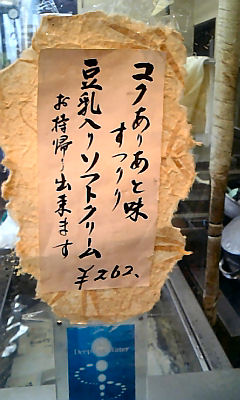 コクありあと味
すっきり
豆乳入りソフトクリーム
お持帰り出来ます
¥262、
Deep Water